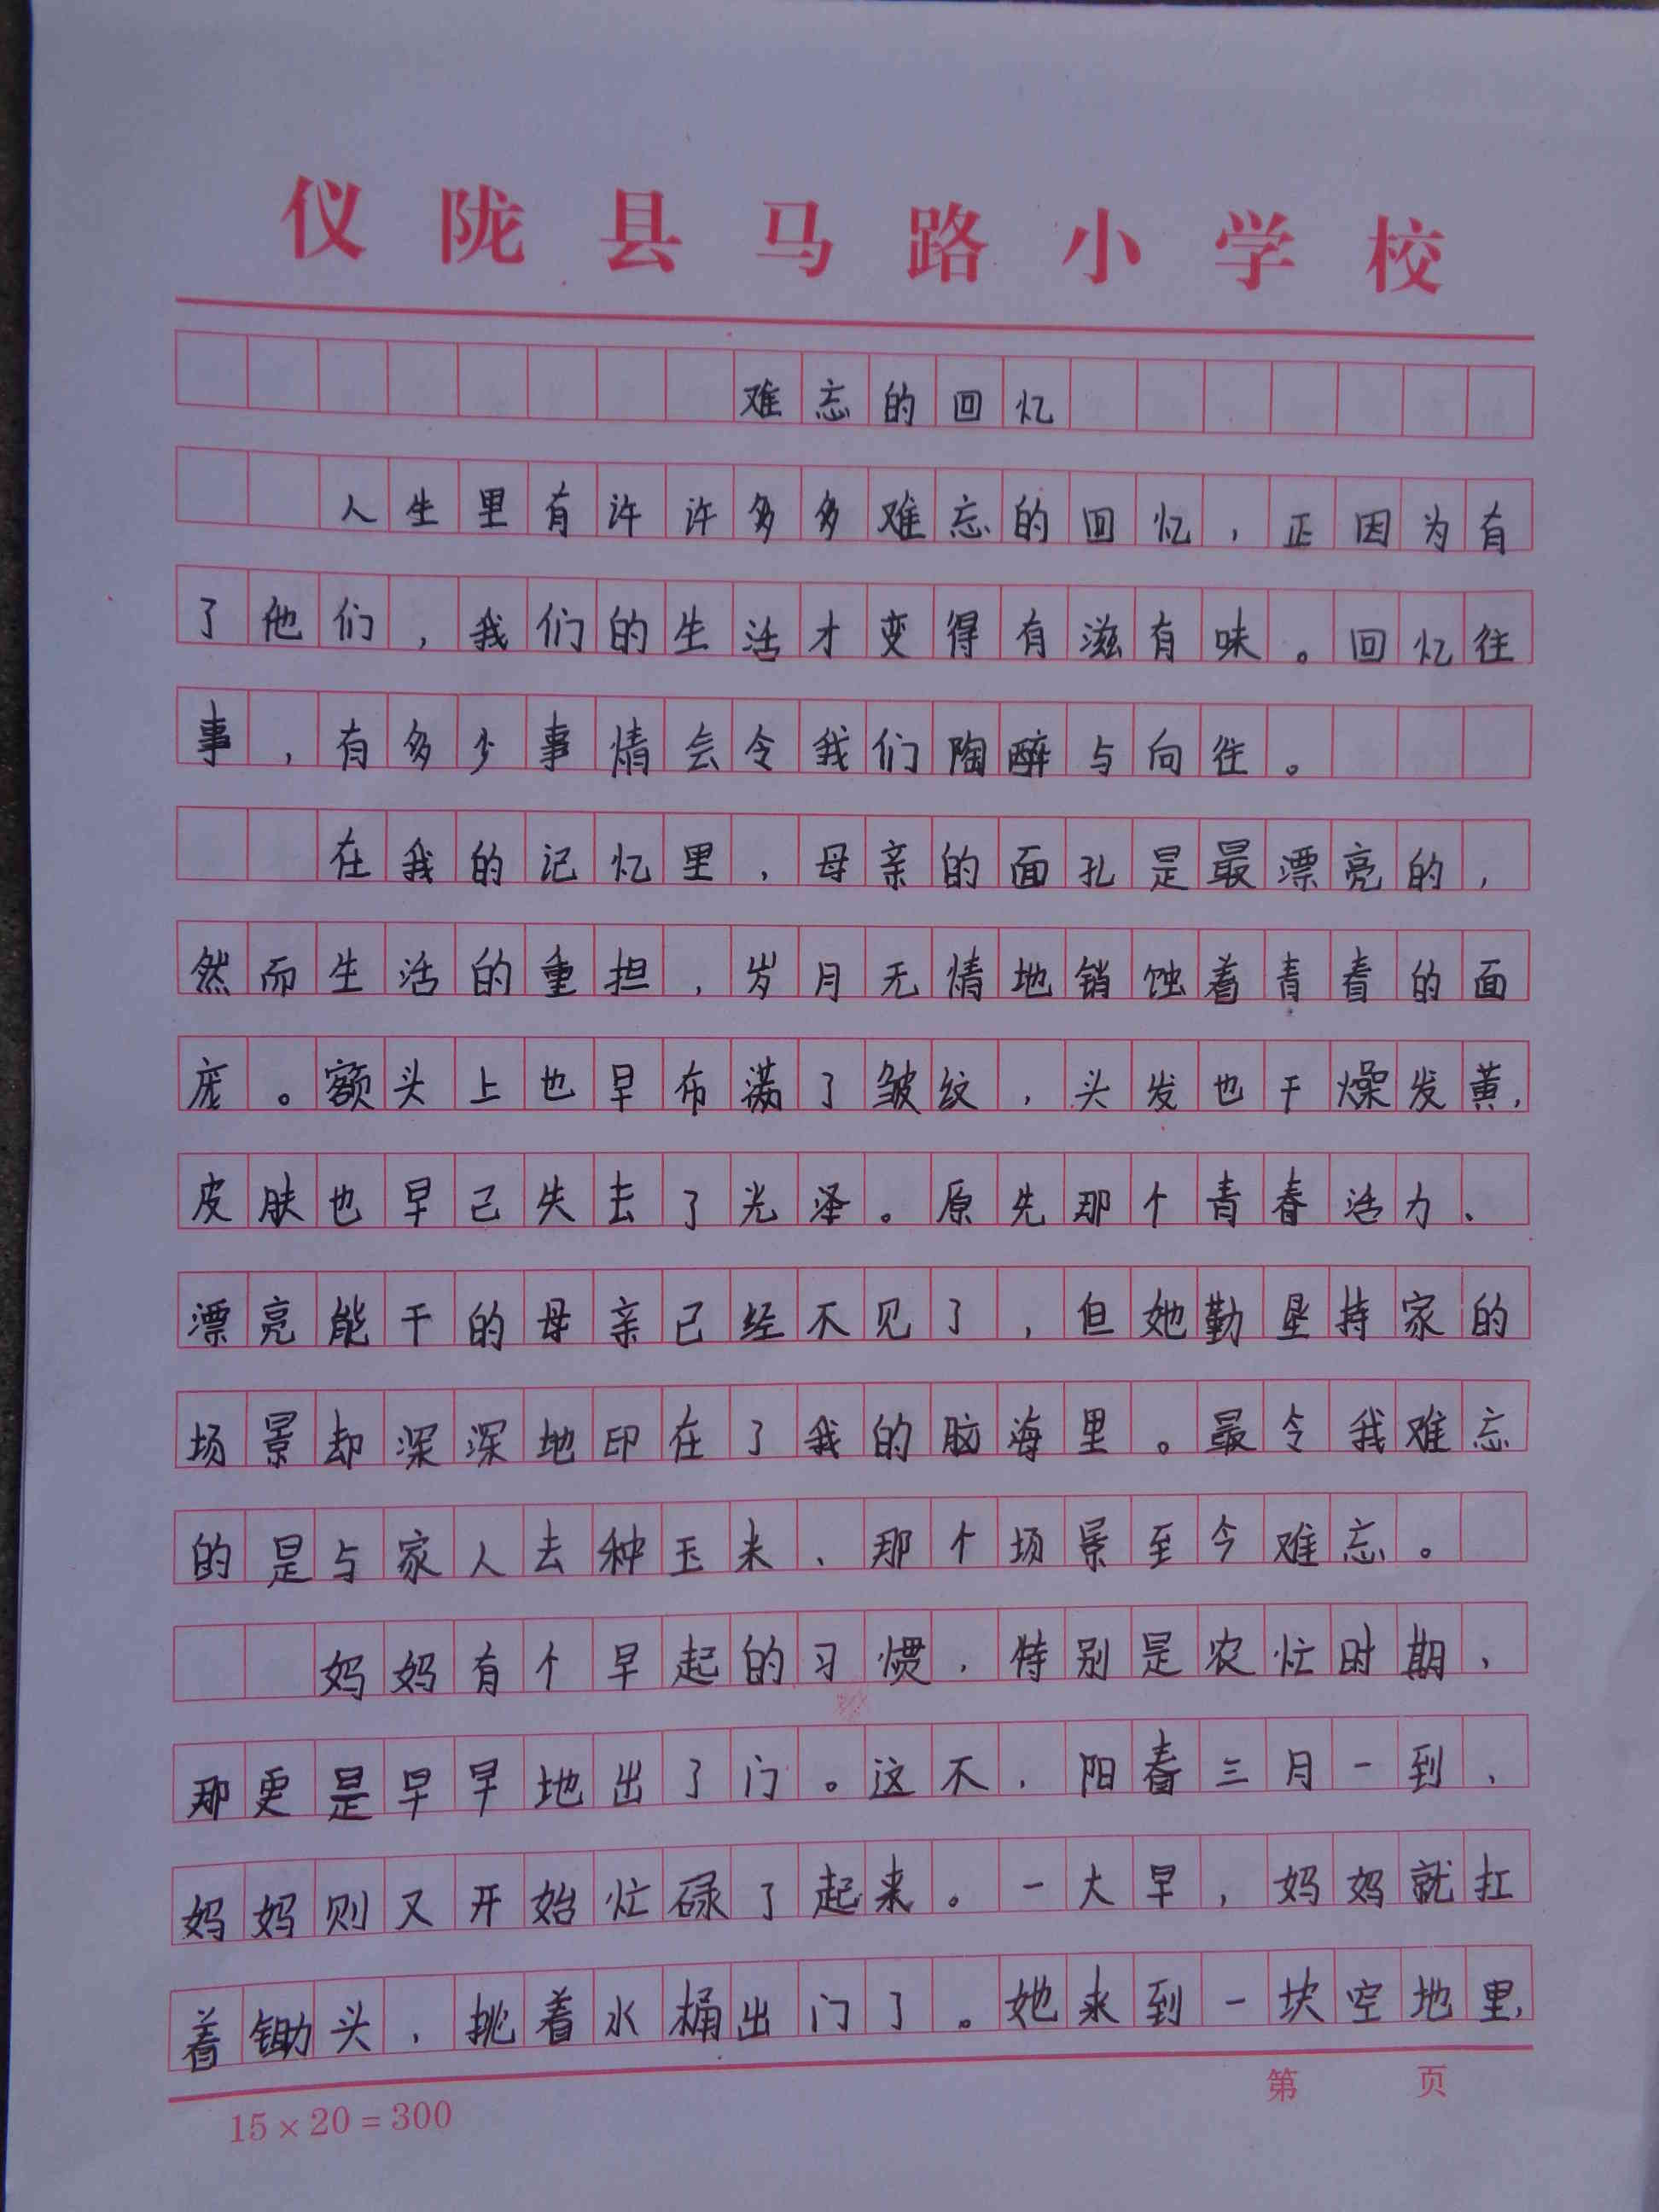 仪陇县马路小学校
难忘的回忆
人生里有许许多多难忘的回忆，正因为有
了他们，我们的生活才变得有滋有味。回忆往
事，有多少事情会令我们陶醉与向往。
在我的记忆里，母亲的面孔是最漂亮的，
然而生活的重担，岁月无情地销蚀着青春的面
庞。额头上也早布满了皱纹，头发也干燥发黄，
皮肤也早已失去了光泽。原先那个青春活力、
漂亮能干的母亲已经不见了，但她勤垦持家的
场景却深深地印在了我的脑海里。最令我难忘
的是与家人去种玉米、那个场景至今难忘。
妈妈有个早起的习惯，特别是农忙时期，
那更是早早地出了门。这不，阳春三月一到，
妈妈则又开始忙碌了起来。一大早，妈妈就扛
着锄头，挑着水桶出门了。她来到一块空地里，
第 页
15×20=300